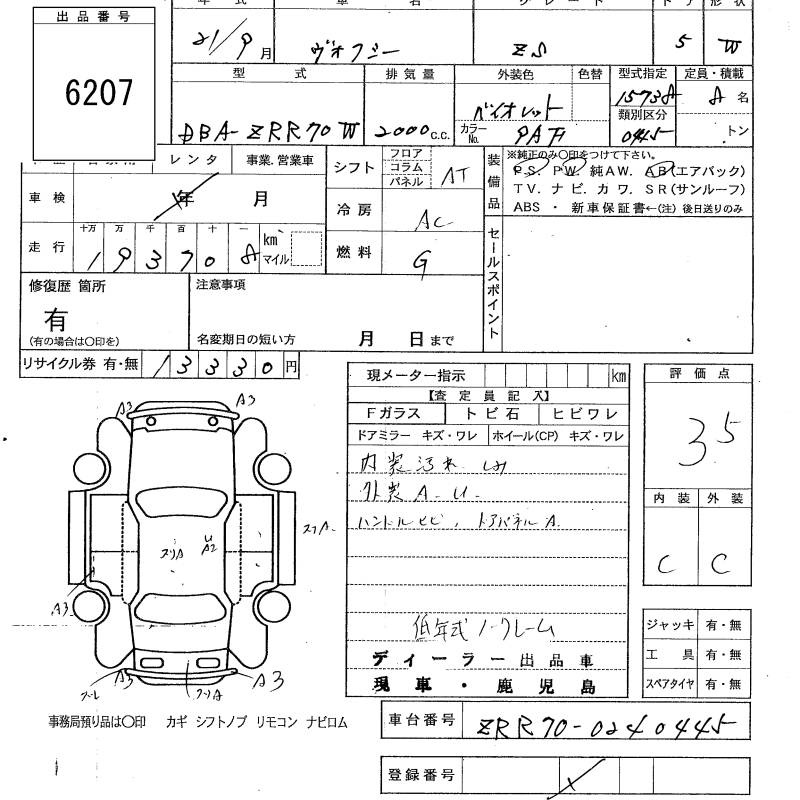 出品番号
6207
年 式 車 名 グレード ドア 形 状
21/9月 ヴォクシー ZS 5 W
型 式 排気量 外装色 色替 型式指定 定員・積載
DBA-ZRR70W 2000c.c. バイオレット 15738 8名
カラーNo. 9AF 類別区分 0445 トン
レンタ 事業.営業車
シフト フロア コラム パネル AT
装備品 ※純正のみ〇印をつけて下さい。
PS. PW. 純AW. AB(エアバック)
TV. ナビ. カワ. SR(サンルーフ)
ABS ・ 新車保証書←(注)後日送りのみ
車 検 年 月
冷 房 AC
走 行 十万 万 千 百 十 一 km マイル
193708
燃 料 G
セールスポイント
修復歴 箇所
有
(有の場合は〇印を)
注意事項
名変期日の短い方 月 日まで
リサイクル券 有・無 13330円
現メーター指示 km
【査定員記入】
Fガラス トビ石 ヒビワレ
ドアミラー キズ・ワレ ホイール(CP) キズ・ワレ
内装汚れ シミ
外装A.U.
ハンドルヒビ, ドアパネルA.
低年式ノークレーム
ディーラー出品車
現車・鹿児島
評 価 点
3.5
内 装 外 装
C C
ジャッキ 有・無
工 具 有・無
スペアタイヤ 有・無
A3 A3
スリA U A2 スリA
A3
ズーレ A3 スリA A3
事務局預り品は〇印 カギ シフトノブ リモコン ナビロム
車台番号 ZRR70-0240445
登録番号